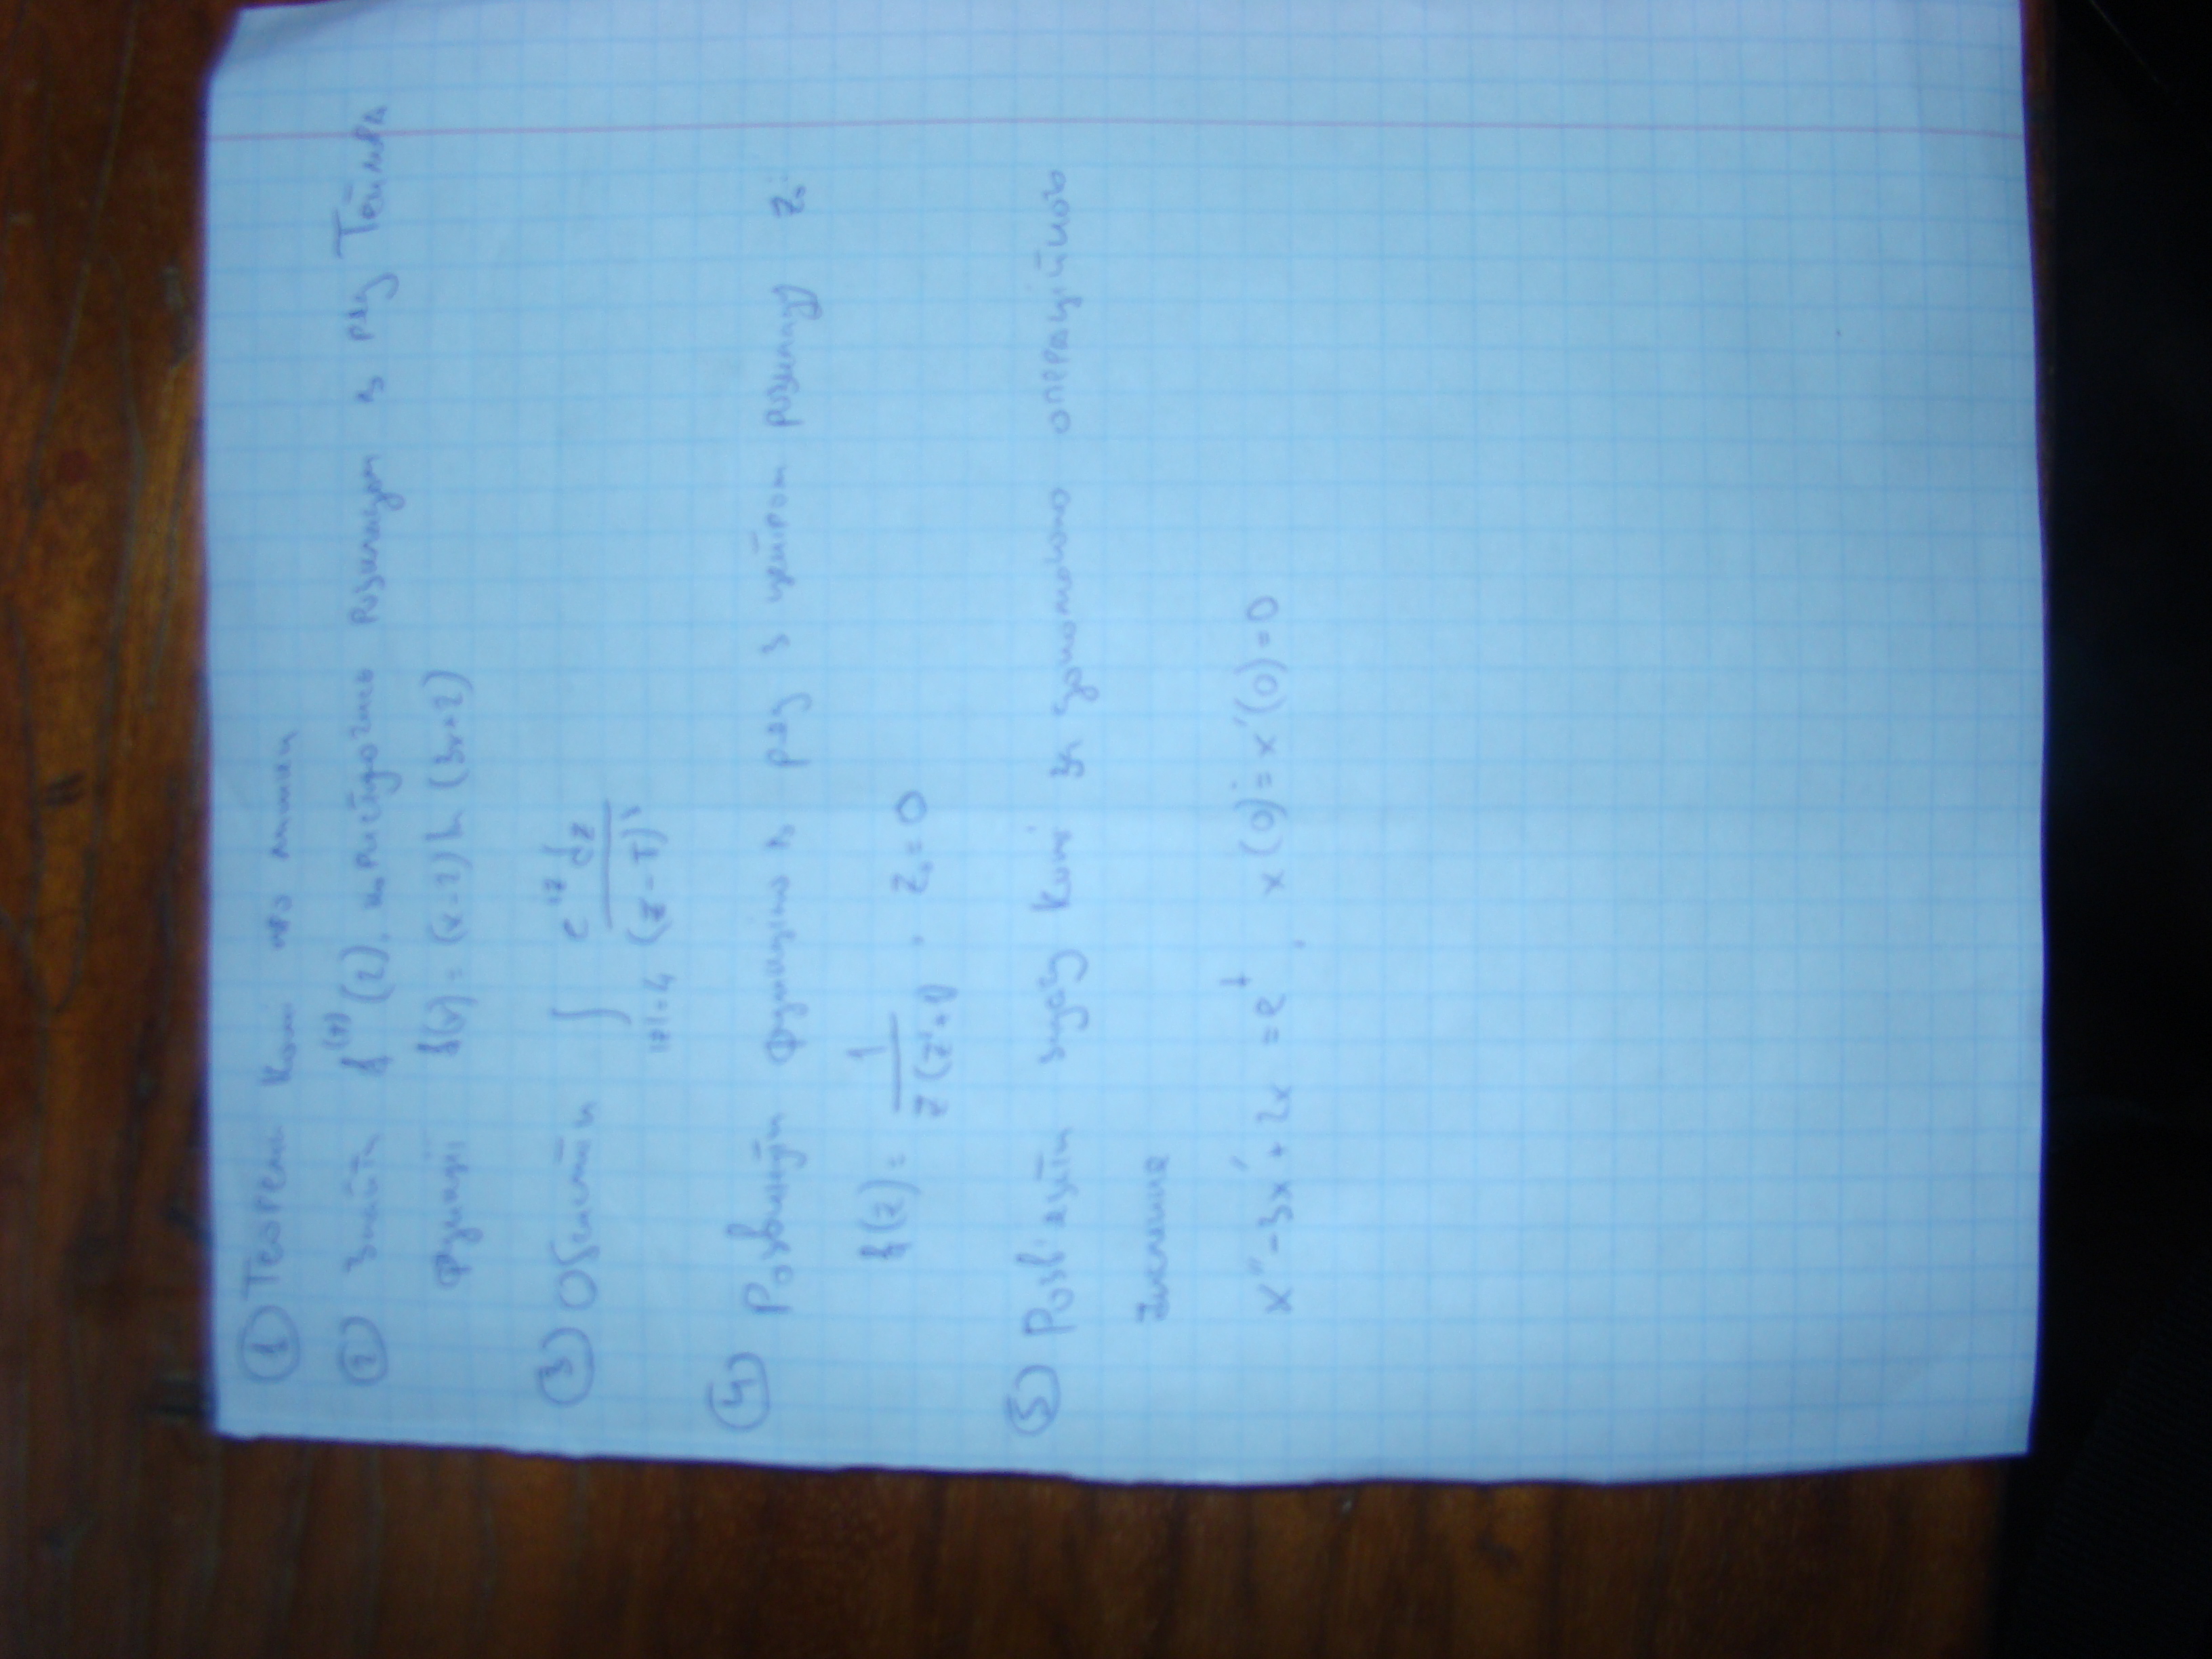 ① Теорема Коші про лишки
② Знайти f⁽⁷⁾(2), користуючись розкладом в ряд Тейлора
функції f(x) = (x-2) ln (3x+2)
③ Обчислити ∫|z|=4 e^{iz} dz / (z-π)³
④ Розвинути функцію в ряд з центром розкладу z₀:
f(z) = 1 / z(z²+1) , z₀ = 0
⑤ Розв'язати задачу Коші за допомогою операційного
числення
x'' - 3x' + 2x = e^t , x(0) = x'(0) = 0